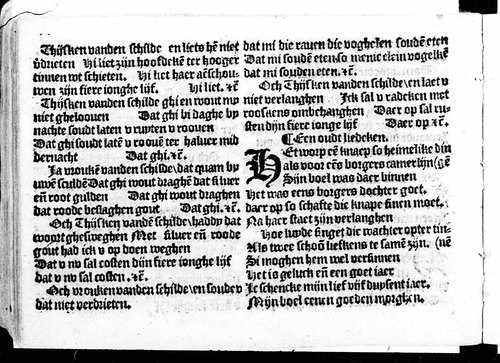 Thijsken vanden schilde en liets hẽ niet
v̄drieten Hi liet zijn hoofdekẽ ter hooger
tinnen wt schieten. Hi liet haer aẽschou
wen zijn fiere ionghe lijf. Hi liet.⁊c̄.
Thijsken vanden schilde ghi en wout mv
niet ghelooven Dat ghi bi daghe by
nachte soudt laten v ruyten v rooven
Dat ghi soudt latẽ v rooue ter haluer mid
dernacht Dat ghi.⁊c̄.
Ja vrouke vanden schilde/dat quam by
uwẽ sculdẽ Dat ghi wout draghẽ dat siluer
eñ root gulden Dat ghi wout draghen
dat roode beslaghen gout Dat ghi.⁊c̄.
Och Thijsken vandẽ schilde/haddy dat
woort ghesweghen Met siluer eñ roode
gout had ick v op doen weghen
Dat v nv sal costen dijn fiere ionghe lijf
dat v nv sal costen .⁊c̄.
Och vrouken vanden schilde/en soudev
dat niet verdrieten.
dat mi die rauen die voghelen soudẽ eten
Dat mi soudẽ eten so menic clein vogelkẽ
dat mi souden eten.⁊c̄.
Och Thijsken vanden schilde/en laet v
niet verlanghen Ick sal v radeken met
rooskens ombehanghen Daer op sal ru-
sten dijn fiere ionge lijf Daer op.⁊c̄.
¶ Een oudt liedeken.
HEt worp eẽ knaep so heimelike din
als voor eẽs borgers camerlijn (gẽ
Sijn boel was daer binnen
Het was eens borgers dochter goet.
daer op so schafte die knape sinen moet.
Na haer staet zijn verlanghen
Hoe luyde singet die wachter op ter tin-
Als twee schoõ lieskens te samẽ zijn. (nẽ
Si moghen hem wel versinnen
Het is geluck eñ een goet iaer
Je schencke mijn lief vijf duysent iaer.
Mijn boel eenen goeden morghen.